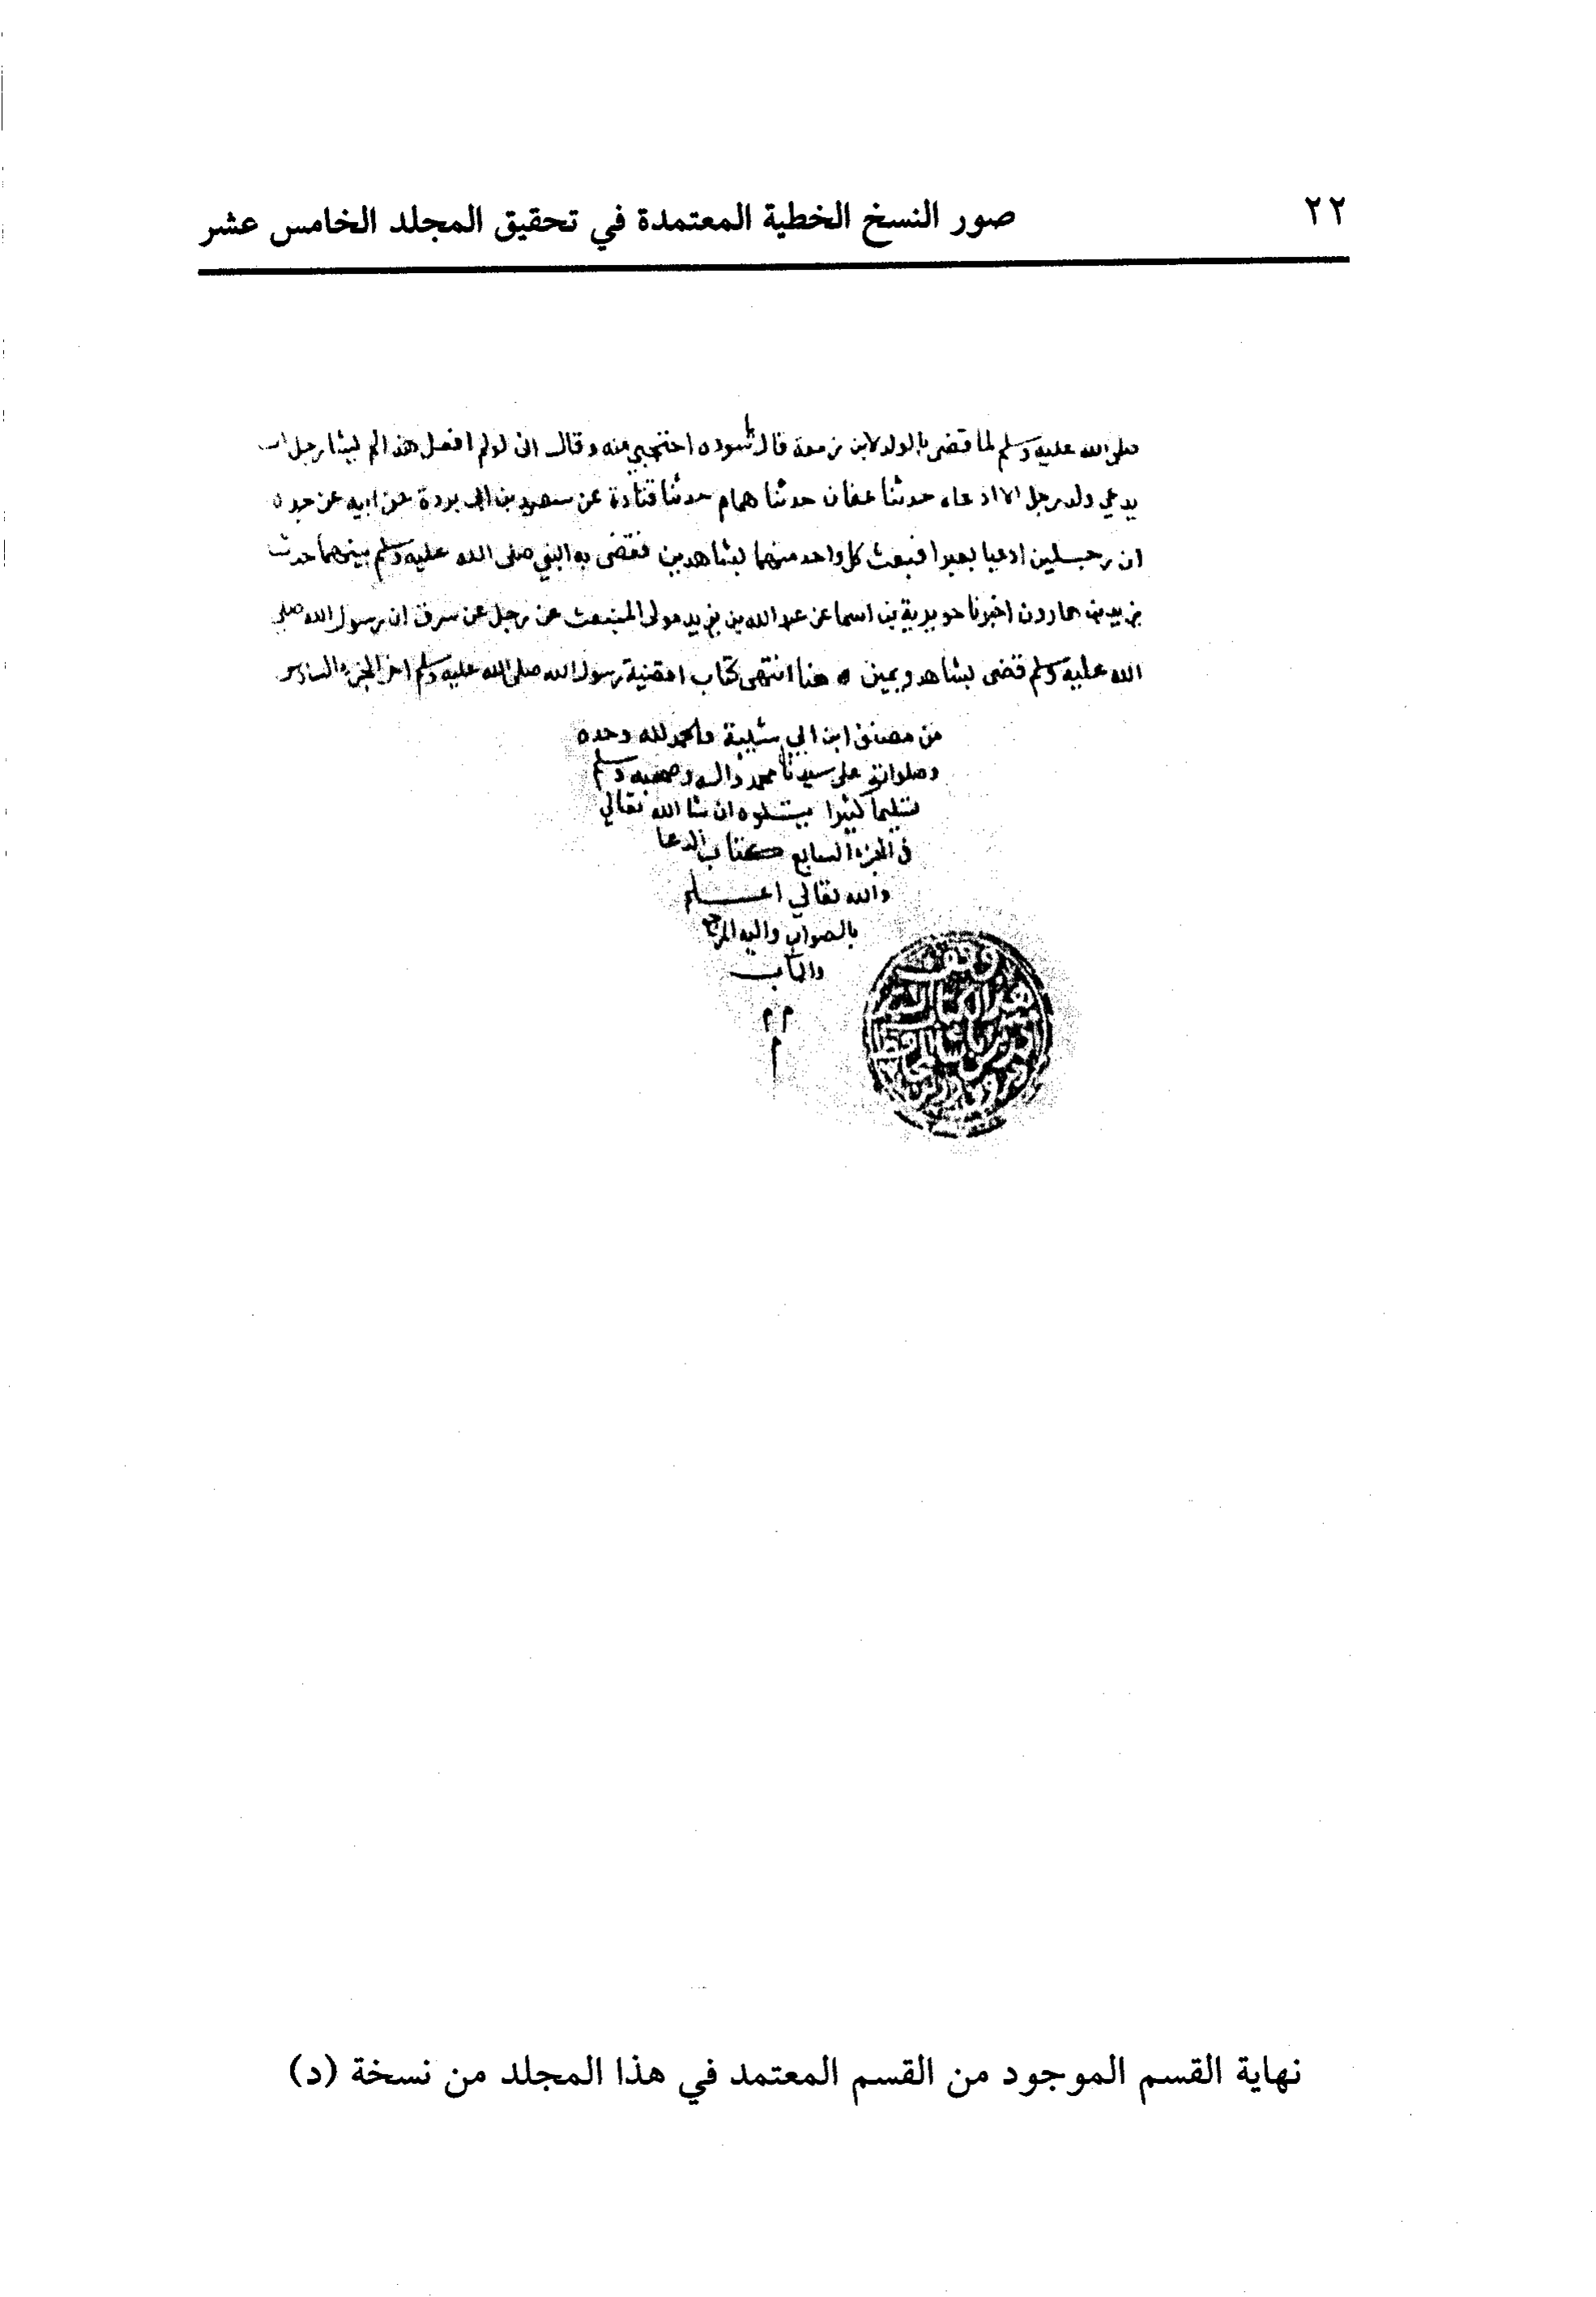 ٢٢
صور النسخ الخطية المعتمدة في تحقيق المجلد الخامس عشر
صلى الله عليه وسلم لما قضى بالولد لابن زمعة قال لسوده احتجبي منه وقال انى لو لم افعل هذا لم يشا رجل ان
يدعي ولد رجل الا ادعاه حدثنا عفان حدثنا همام حدثنا قتادة عن سعيد بن ابى بردة عن ابيه عن جده
ان رجلين ادعيا بعيرا فبعث كل واحد منهما بشاهدين فقضى به النبي صلى الله عليه وسلم بينهما حدثنا
يزيد بن هارون اخبرنا جويرية بن اسما عن عبد الله بن يزيد مولى المنبعث عن رجل عن سرق ان رسول الله صلى
الله عليه وسلم قضى بشاهد ويمين ه هنا انتهى كتاب اقضية رسول الله صلى الله عليه وسلم اخر الجزء السادس
من مصنف ابن ابي شيبة والحمد لله وحده
وصلواته على سيدنا محمد واله وصحبه وسلم
تسليما كثيرا يتلوه ان شا الله تعالي
في الجزء السابع كتاب الدعا
والله تعالي اعلم
بالصواب واليه المرجع
والمآب
م م
م
وقف
هذا الكتاب
نهاية القسم الموجود من القسم المعتمد في هذا المجلد من نسخة (د)